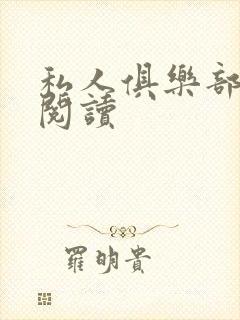 私人俱樂部
閱讀
羅明貴